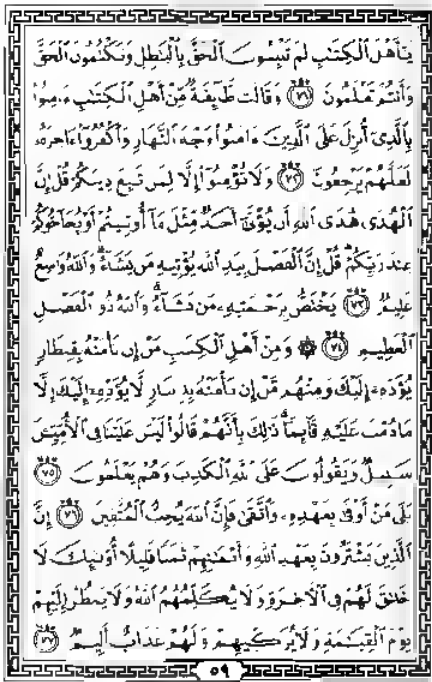 يَٰٓأَهْلَ ٱلْكِتَٰبِ لِمَ تَلْبِسُونَ ٱلْحَقَّ بِٱلْبَٰطِلِ وَتَكْتُمُونَ ٱلْحَقَّ
وَأَنتُمْ تَعْلَمُونَ ٧١ وَقَالَت طَّآئِفَةٌ مِّنْ أَهْلِ ٱلْكِتَٰبِ ءَامِنُوا۟
بِٱلَّذِىٓ أُنزِلَ عَلَى ٱلَّذِينَ ءَامَنُوا۟ وَجْهَ ٱلنَّهَارِ وَٱكْفُرُوٓا۟ ءَاخِرَهُۥ
لَعَلَّهُمْ يَرْجِعُونَ ٧٢ وَلَا تُؤْمِنُوٓا۟ إِلَّا لِمَن تَبِعَ دِينَكُمْ قُلْ إِنَّ
ٱلْهُدَىٰ هُدَى ٱللَّهِ أَن يُؤْتَىٰٓ أَحَدٌ مِّثْلَ مَآ أُوتِيتُمْ أَوْ يُحَآجُّوكُمْ
عِندَ رَبِّكُمْ قُلْ إِنَّ ٱلْفَضْلَ بِيَدِ ٱللَّهِ يُؤْتِيهِ مَن يَشَآءُ وَٱللَّهُ وَٰسِعٌ
عَلِيمٌ ٧٣ يَخْتَصُّ بِرَحْمَتِهِۦ مَن يَشَآءُ وَٱللَّهُ ذُو ٱلْفَضْلِ
ٱلْعَظِيمِ ٧٤ ۞ وَمِنْ أَهْلِ ٱلْكِتَٰبِ مَنْ إِن تَأْمَنْهُ بِقِنطَارٍ
يُؤَدِّهِۦٓ إِلَيْكَ وَمِنْهُم مَّنْ إِن تَأْمَنْهُ بِدِينَارٍ لَّا يُؤَدِّهِۦٓ إِلَيْكَ إِلَّا
مَا دُمْتَ عَلَيْهِ قَآئِمًا ذَٰلِكَ بِأَنَّهُمْ قَالُوا۟ لَيْسَ عَلَيْنَا فِى ٱلْأُمِّيِّۦنَ
سَبِيلٌ وَيَقُولُونَ عَلَى ٱللَّهِ ٱلْكَذِبَ وَهُمْ يَعْلَمُونَ ٧٥
بَلَىٰ مَنْ أَوْفَىٰ بِعَهْدِهِۦ وَٱتَّقَىٰ فَإِنَّ ٱللَّهَ يُحِبُّ ٱلْمُتَّقِينَ ٧٦ إِنَّ
ٱلَّذِينَ يَشْتَرُونَ بِعَهْدِ ٱللَّهِ وَأَيْمَٰنِهِمْ ثَمَنًا قَلِيلًا أُو۟لَٰٓئِكَ لَا
خَلَٰقَ لَهُمْ فِى ٱلْءَاخِرَةِ وَلَا يُكَلِّمُهُمُ ٱللَّهُ وَلَا يَنظُرُ إِلَيْهِمْ
يَوْمَ ٱلْقِيَٰمَةِ وَلَا يُزَكِّيهِمْ وَلَهُمْ عَذَابٌ أَلِيمٌ ٧٧
٥٩